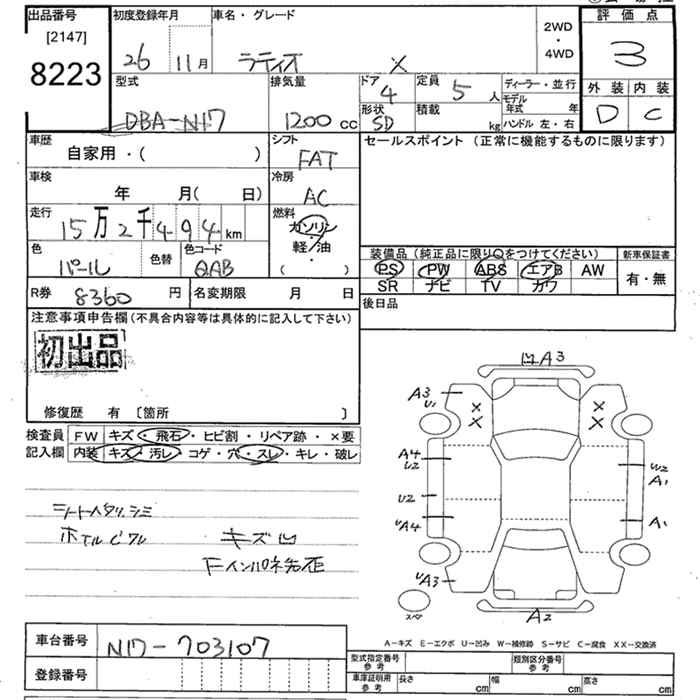 出品番号
[2147]
8223
初度登録年月
26 11月
車名・グレード
ラティオ X
2WD
・
4WD
評価点
3
外装 内装
D C
型式
DBA-N17
排気量
1200 cc
ドア
4
形状
SD
定員
5 人
積載
kg
ディーラー・並行
モデル年式 年
ハンドル 左・右
車歴
自家用・( )
シフト
FAT
セールスポイント (正常に機能するものに限ります)
車検
年 月( 日)
冷房
AC
走行
15万2千494km
燃料
ガソリン
軽/油
( ・ )
色
パール
色替
色コード
QAB
装備品 (純正品に限り○をつけてください)
PS PW ABS エアB AW
SR ナビ TV カワ
新車保証書
有・無
R券 8360 円
名変期限 月 日
後日品
注意事項申告欄 (不具合内容等は具体的に記入して下さい)
初出品
修復歴 有 〔箇所 〕
検査員
記入欄
FW キズ・飛石・ヒビ割・リペア跡・×要
内装 キズ・汚レ・コゲ・穴・スレ・キレ・破レ
シートヘタリ、シミ
ホイルCワレ
キズ凹
凹A3
A3
U1
× ×
× ×
A4
U2
U2
UA4
UA3
W2
A1
A1
スペア
A2
A-キズ E-エクボ U-凹み W-補修跡 S-サビ C-腐食 XX-交換済
車台番号 N17-703107
登録番号
型式指定番号
参考
類別区分番号
参考
車庫証明用
参考
長さ cm 幅 cm 高さ cm